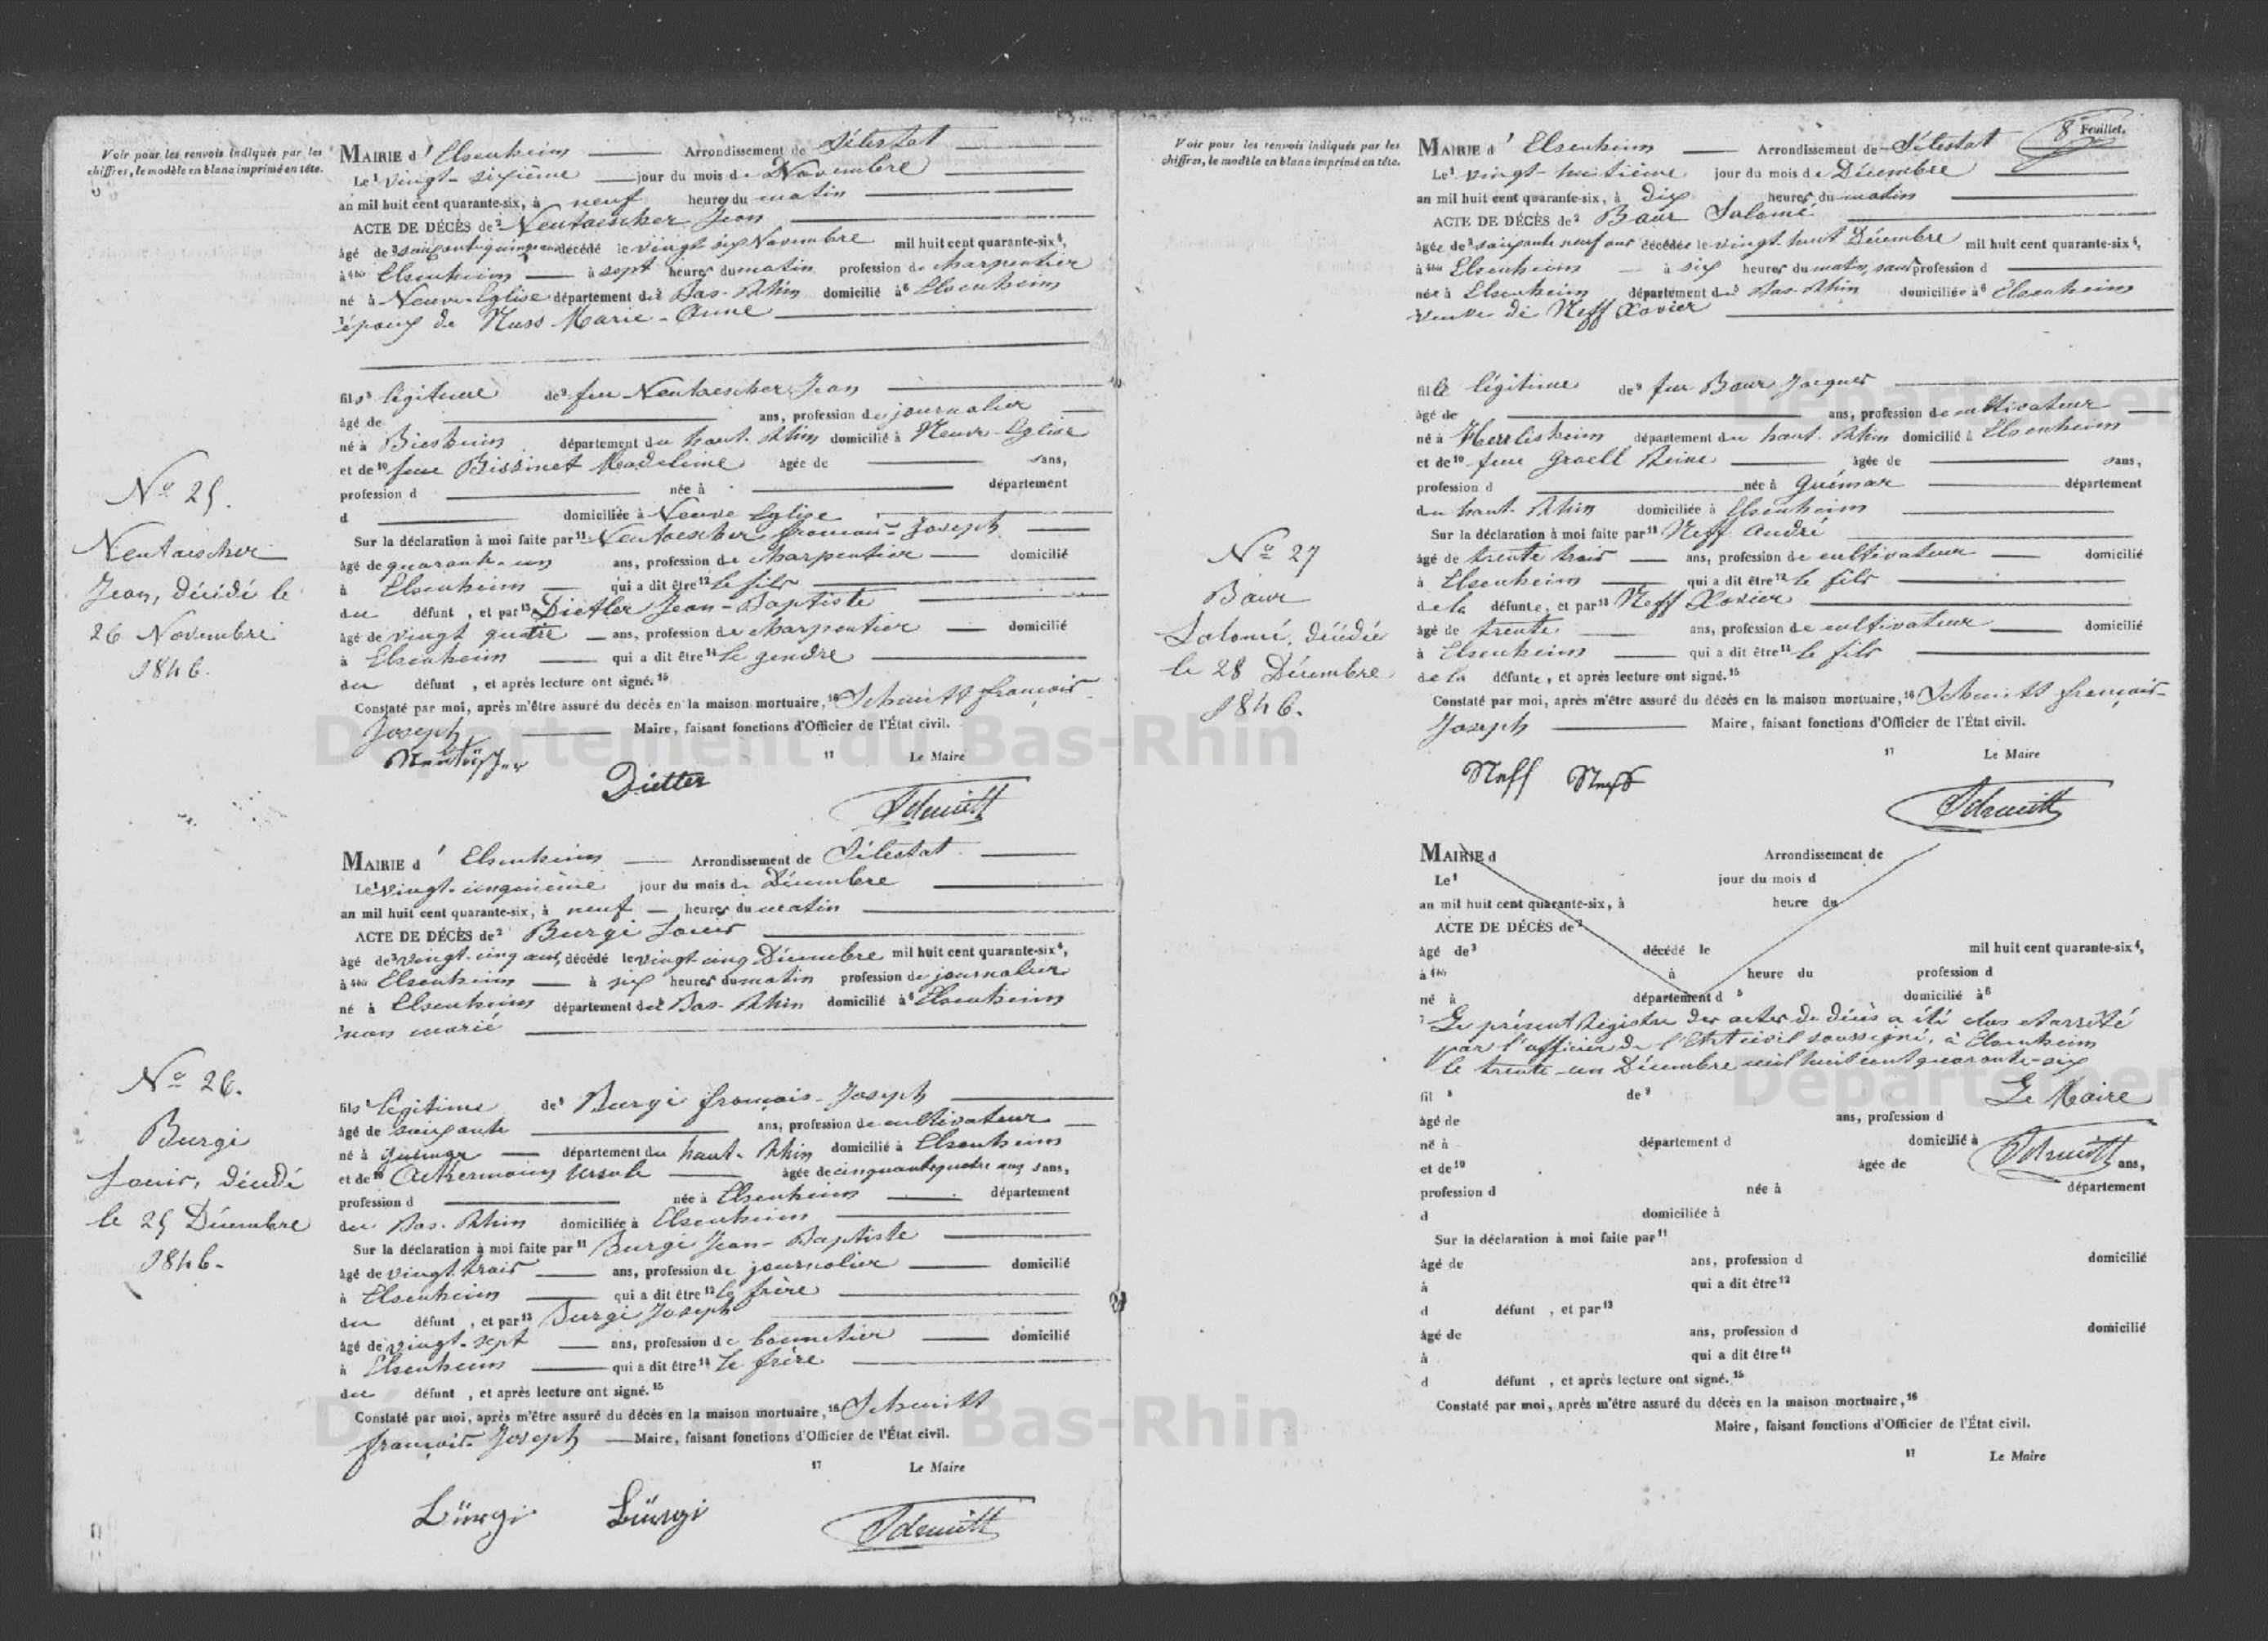 Voir pour les renvois indiqués par les
chiffres, le modèle en blanc imprimé en tête.
MAIRIE d' Elsenheim Arrondissement de Sélestat
Le 1 vingt-sixième jour du mois de Novembre
an mil huit cent quarante-six, à neuf heures du matin
ACTE DE DÉCÈS de 2 Neutaescher Jean
âgé de 3 soixante quinze ans décédé le vingt six Novembre mil huit cent quarante-six 4,
à 4bis Elsenheim à sept heures du matin profession de charpentier
né à Neuve-Eglise département du 5 Bas-Rhin domicilié à 6 Elsenheim
7 époux de Nuss Marie-Anne
fils 8 légitime de 9 feu Neutaescher Jean
âgé de ans, profession de journalier
né à Biesheim département du haut-Rhin domicilié à Neuve-Eglise
et de 10 feue Bissinet Madeleine âgée de ans,
profession d née à département
d domiciliée à Neuve Eglise
Sur la déclaration à moi faite par 11 Neutaescher françois-Joseph
âgé de quarante-un ans, profession de charpentier domicilié
à Elsenheim qui a dit être 12 le fils
du défunt , et par 13 Dietler Jean-Baptiste
âgé de vingt quatre ans, profession de charpentier domicilié
à Elsenheim qui a dit être 14 le gendre
du défunt , et après lecture ont signé. 15
Constaté par moi, après m'être assuré du décès en la maison mortuaire, 16 Schmitt françois-
Joseph Maire, faisant fonctions d'Officier de l'État civil.
17 Le Maire
Dietler
Schmitt
No 25.
Neutaescher
Jean, décédé le
26 Novembre
1846.
MAIRIE d' Elsenheim Arrondissement de Sélestat
Le 1 vingt-cinquième jour du mois de Décembre
an mil huit cent quarante-six, à neuf heures du matin
ACTE DE DÉCÈS de 2 Burgi Louis
âgé de 3 vingt-cinq ans, décédé le vingt cinq Décembre mil huit cent quarante-six 4,
à 4bis Elsenheim à six heures du matin profession de journalier
né à Elsenheim département du 5 Bas-Rhin domicilié à 6 Elsenheim
7 non marié
fils 8 légitime de 9 Burgi françois-Joseph
âgé de soixante ans, profession de cultivateur
né à Guémar département du haut-Rhin domicilié à Elsenheim
et de 10 Ackermann Ursule âgée de cinquante quatre ans ans,
profession d née à Elsenheim département
du Bas-Rhin domiciliée à Elsenheim
Sur la déclaration à moi faite par 11 Burgi Jean-Baptiste
âgé de vingt trois ans, profession de journalier domicilié
à Elsenheim qui a dit être 12 le frère
du défunt , et par 13 Burgi Joseph
âgé de vingt-sept ans, profession de bonnetier domicilié
à Elsenheim qui a dit être 14 le frère
du défunt , et après lecture ont signé. 15
Constaté par moi, après m'être assuré du décès en la maison mortuaire, 16 Schmitt
françois-Joseph Maire, faisant fonctions d'Officier de l'État civil.
17 Le Maire
Bürgi Bürgi
Schmitt
No 26.
Burgi
Louis, décédé
le 25 Décembre
1846.
Voir pour les renvois indiqués par les
chiffres, le modèle en blanc imprimé en tête.
8e Feuillet.
MAIRIE d' Elsenheim Arrondissement de Sélestat
Le 1 vingt-huitième jour du mois de Décembre
an mil huit cent quarante-six, à dix heures du matin
ACTE DE DÉCÈS de 2 Baur Salomé
âgée de 3 soixante neuf ans décédée le vingt-huit Décembre mil huit cent quarante-six 4,
à 4bis Elsenheim à six heures du matin, sans profession d
née à Elsenheim département du 5 Bas-Rhin domiciliée à 6 Elsenheim
veuve de Neff Xavier
fille légitime de 9 feu Baur Jacques
âgé de ans, profession de cultivateur
né à Herrlisheim département du haut-Rhin domicilié à Elsenheim
et de 10 feue Groell Reine âgée de ans,
profession d née à Guémar département
du haut-Rhin domiciliée à Elsenheim
Sur la déclaration à moi faite par 11 Neff André
âgé de trente trois ans, profession de cultivateur domicilié
à Elsenheim qui a dit être 12 le fils
de la défunte, et par 13 Neff Xavier
âgé de trente ans, profession de cultivateur domicilié
à Elsenheim qui a dit être 14 le fils
de la défunte, et après lecture ont signé. 15
Constaté par moi, après m'être assuré du décès en la maison mortuaire, 16 Schmitt françois-
Joseph Maire, faisant fonctions d'Officier de l'État civil.
17 Le Maire
Neff Neff
Schmitt
No 27
Baur
Salomé, décédée
le 28 Décembre
1846.
MAIRIE d Arrondissement de
Le 1 jour du mois d
an mil huit cent quarante-six, à heure du
ACTE DE DÉCÈS de 2
âgé de 3 décédé le mil huit cent quarante-six 4,
à 4bis à heure du profession d
né à département d 5 domicilié à 6
7 Le présent Registre des actes de décès a été clos et arrêté
par l'officier de l'Etat civil soussigné, à Elsenheim
le trente-un Décembre mil huit cent quarante-six
fil 8 de 9 Le Maire
âgé de ans, profession d
né à département d domicilié à Schmitt
et de 10 âgée de ans,
profession d née à département
d domiciliée à
Sur la déclaration à moi faite par 11
âgé de ans, profession d domicilié
à qui a dit être 12
d défunt , et par 13
âgé de ans, profession d domicilié
à qui a dit être 14
d défunt , et après lecture ont signé. 15
Constaté par moi, après m'être assuré du décès en la maison mortuaire, 16
Maire, faisant fonctions d'Officier de l'État civil.
17 Le Maire
Département du Bas-Rhin
Département du Bas-Rhin
Départemen
Départemen